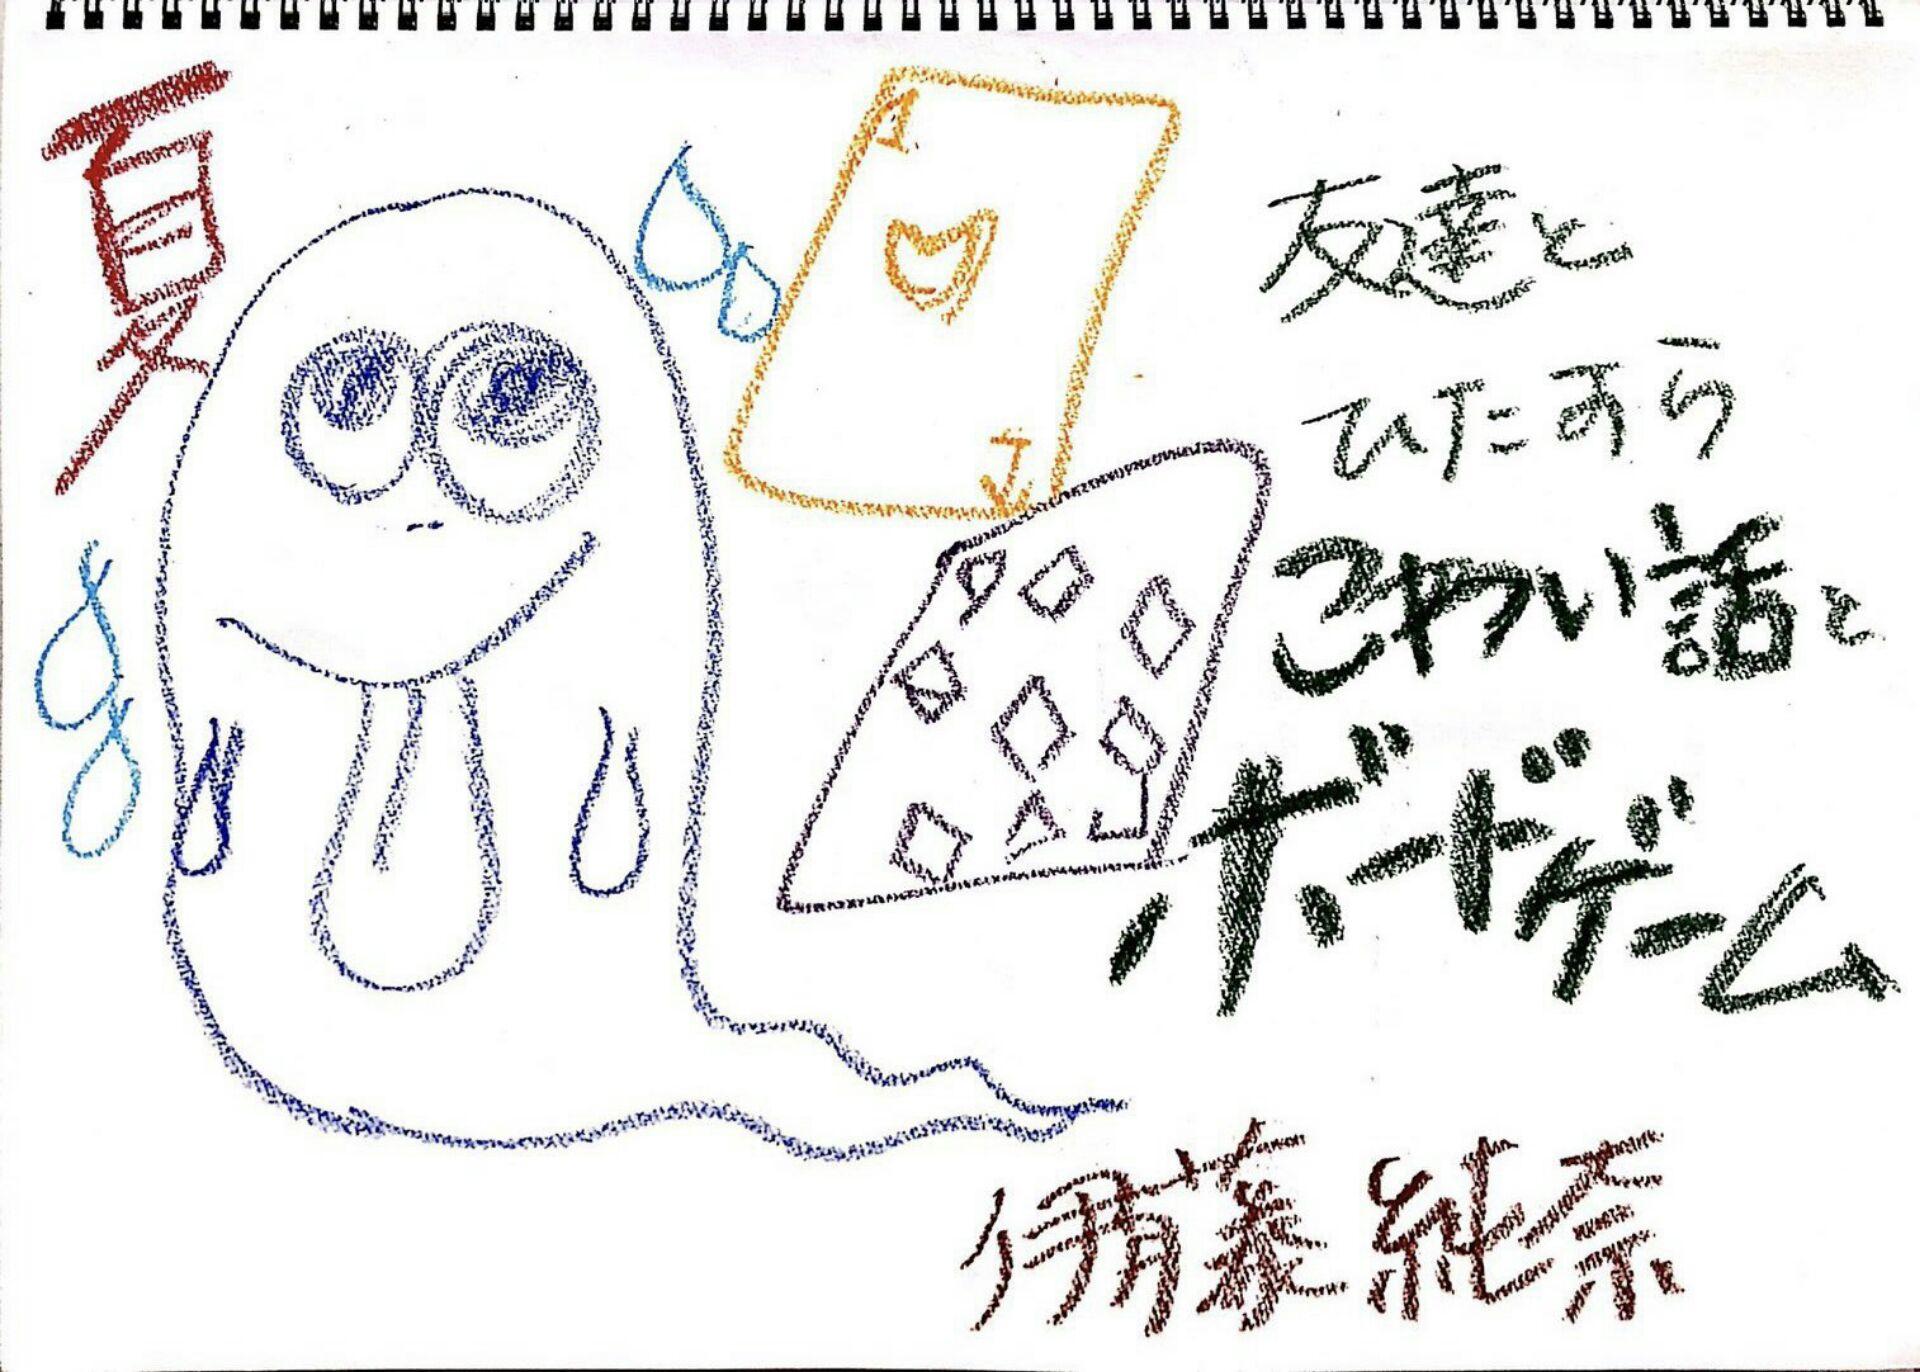 夏
友達と
ひたすら
こわい話と
ボードゲーム
伊藤純奈
J
J